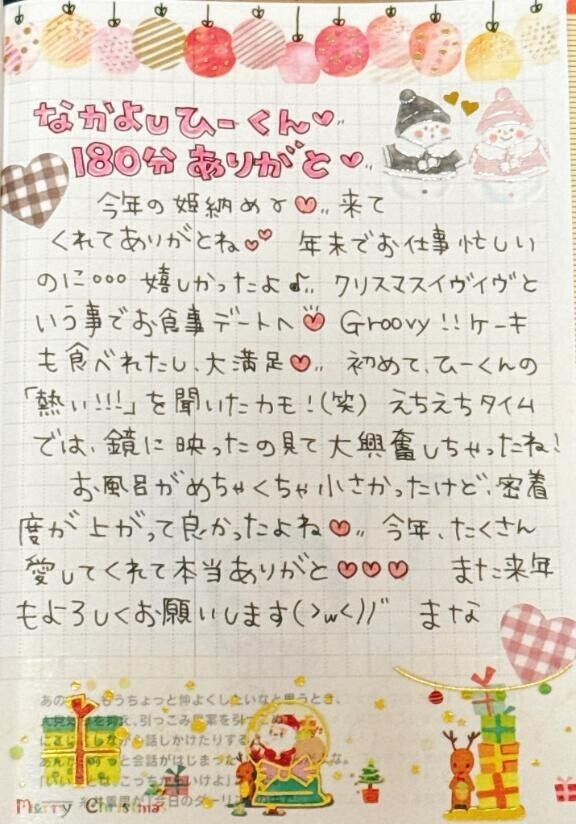 なかよしひーくん♥
180分ありがと♥
今年の姫納めで♥来て
くれてありがとね♥♥ 年末でお仕事忙しい
のに°°° 嬉しかったよ♪ クリスマスイヴイヴと
いう事でお食事デートへ♥ Groovy!!ケーキ
も食べれたし、大満足♥ 初めて、ひーくんの
「熱い!!!」を聞いたカモ!(笑) えちえちタイム
では、鏡に映ったの見て大興奮しちゃったね!
お風呂がめちゃくちゃ小さかったけど、密着
度が上がって良かったよね♥ 今年、たくさん
愛してくれて本当ありがと♥♥♥ また来年
もよろしくお願いします(>w<)ﾉﾞ まな
もうちょっと仲よくしたいなと思うとき、
引っこみ思案を引っこめ
話しかけたりする
会話がはじまった
こっち
Merry Christmas
糸井重里「今日のダーリン